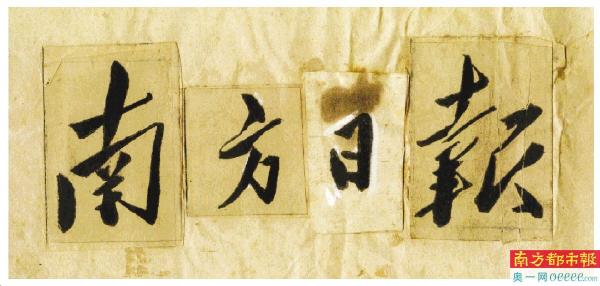 南方日報
南方都市報
奥一网oeeee.com